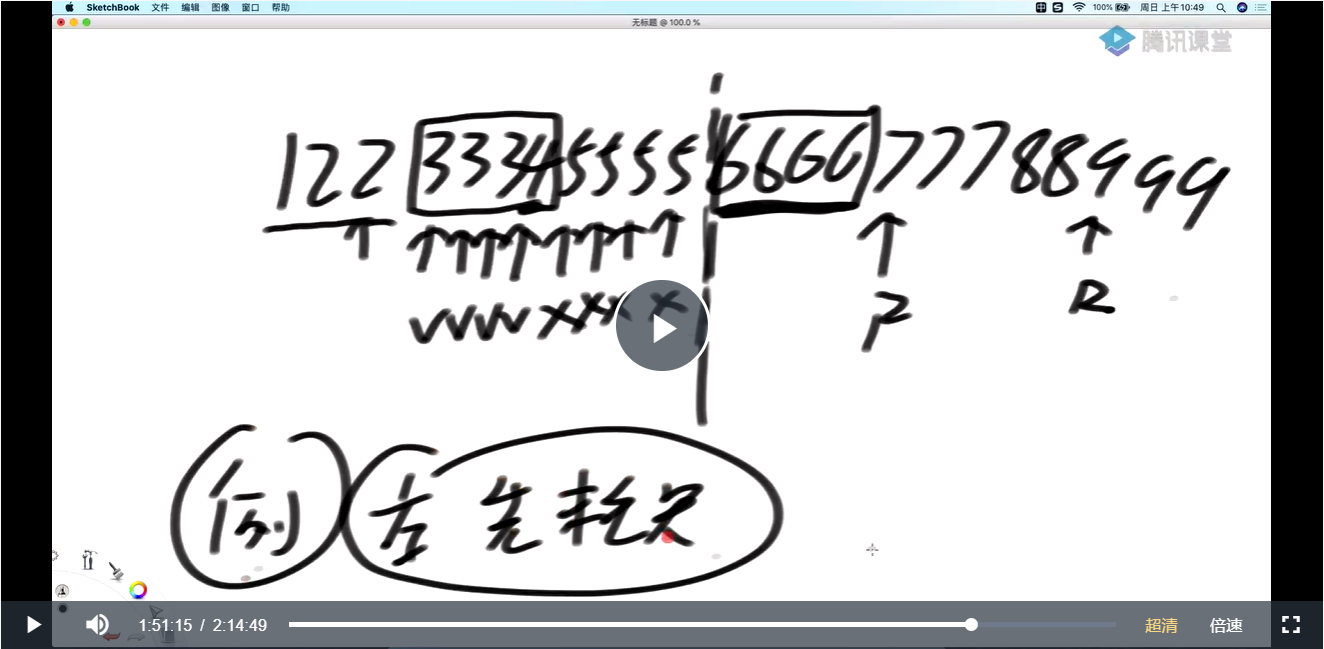 SketchBook 文件 编辑 图像 窗口 帮助 中 S 100% 周日 上午10:49
无标题 @ 100.0 %
腾讯课堂
122 3334 5555 6666 777 88 999
P R
例 左 先 耗 尽
1:51:15 / 2:14:49 超清 倍速